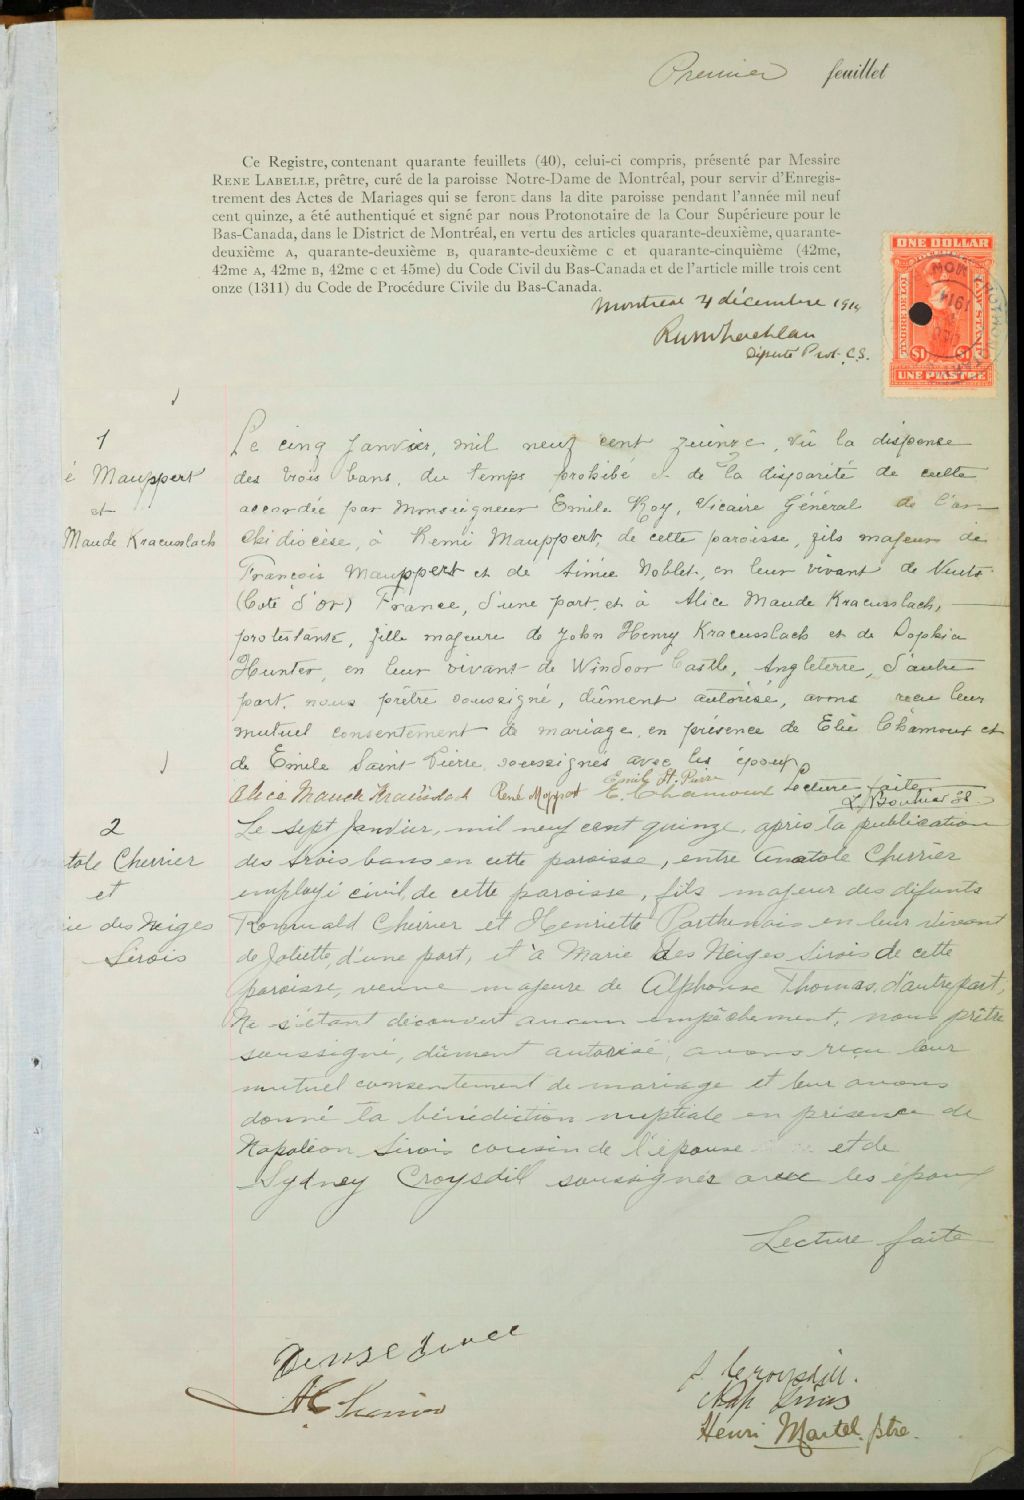 Premier feuillet
Ce Registre, contenant quarante feuillets (40), celui-ci compris, présenté par Messire
RENE LABELLE, prêtre, curé de la paroisse Notre-Dame de Montréal, pour servir d'Enregis-
trement des Actes de Mariages qui se feront dans la dite paroisse pendant l'année mil neuf
cent quinze, a été authentiqué et signé par nous Protonotaire de la Cour Supérieure pour le
Bas-Canada, dans le District de Montréal, en vertu des articles quarante-deuxième, quarante-
deuxième A, quarante-deuxième B, quarante-deuxième C et quarante-cinquième (42me,
42me A, 42me B, 42me C et 45me) du Code Civil du Bas-Canada et de l'article mille trois cent
onze (1311) du Code de Procédure Civile du Bas-Canada.
Montreal 4 décembre 1914
Député Prot. C.S.
ONE DOLLAR
TIMBRE DE LOI
LAW STAMP
$1 $1
UNE PIASTRE
1
é Mauppert
et
Maude Kracusslach
Le cinq Janvier, mil neuf cent quinze, vû la dispense
des trois bans, du temps prohibé et de la disparité de culte
accordée par Monseigneur Emile Roy, Vicaire Général de l'ar-
chidiocèse, à Remi Mauppert, de cette paroisse, fils majeur de
François Mauppert et de Aimée Noblet, en leur vivant de Nuits
(Côte d'or) France, d'une part, et à Alice Maude Kracusslach,
protestante, fille majeure de John Henry Kracusslach et de Sophia
Hunter, en leur vivant de Windsor Castle, Angleterre, d'autre
part, nous prêtre soussigné, dûment autorisé, avons reçu leur
mutuel consentement de mariage, en présence de Elie Chamoux et
de Emile Saint-Pierre soussignés avec les époux
Lecture faite
Emile St. Pierre
Alice Maude E. Chamoux
2
tole Cherrier
et
ie des Neiges
Sirois
Le sept Janvier, mil neuf cent quinze, après la publication
des trois bans en cette paroisse, entre Anatole Cherrier
employé civil, de cette paroisse, fils majeur des défunts
Romuald Cherrier et Henriette Parthenais en leur vivant
de Joliette, d'une part, et à Marie des Neiges Sirois de cette
paroisse, veuve majeure de Alphonse Thomas, d'autre part,
Ne s'étant découvert aucun empêchement, nous prêtre
soussigné, dûment autorisé, avons reçu leur
mutuel consentement de mariage et leur avons
donné la bénédiction nuptiale en présence de
Napoléon Sirois cousin de l'épouse et de
Sydney Croysdill soussignés avec les époux
Lecture faite
S. Croysdill.
Nap Sirois
Henri Martel. ptre.